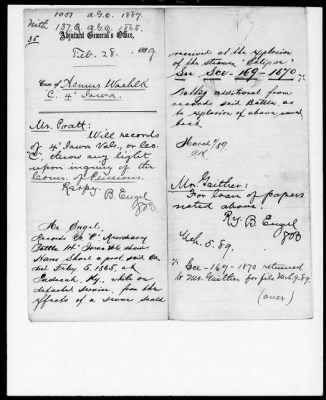 1051 A.G.O. 1887.
With 137 Q A.G.O. 1865.
35
Adjutant General's Office,
Feb. 28. 1889
Case of Asmus
C. 4" Iowa.
Mr. Pratt:
Will records
of 4" Iowa Vols., or Co.
C, throw any light
upon inquiry of the
Com. of Pensions.
Respy.
B. Engel
Mr. Engel,
Records Co. "C"
Battle 4" Iowa Vols show
Hans
Feby. 5, 1865, at
Paducah, Ky., while on
detached service, from the
effects of a severe scald
received at the explosion
of the Steamer "Eclipse"
See Sec-169-1870 71
Nothing additional from
records said Battle, as
to explosion of above named
boat.
March 1/89
Mr. Gaither:
For loan of papers
noted above.
Ry. B. Engel
Mch. 5. 89.
71
Sec-169-1870 returned
to Mr. Gaither for file Mch. 9. 89.
(over)